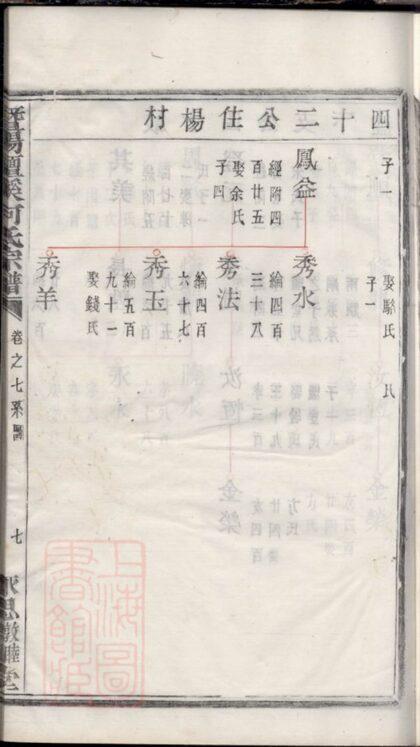 四十二公住楊村
子一
娶駱氏
氏
子一
鳳益
經附四
百廿五
娶余氏
子四
秀水
綸四百
三十八
秀法
綸四百
六十七
秀玉
綸五百
九十一
娶錢氏
秀羊
暨陽 何氏宗譜
卷之七系圖
七
敦睦堂
上海圖書館藏